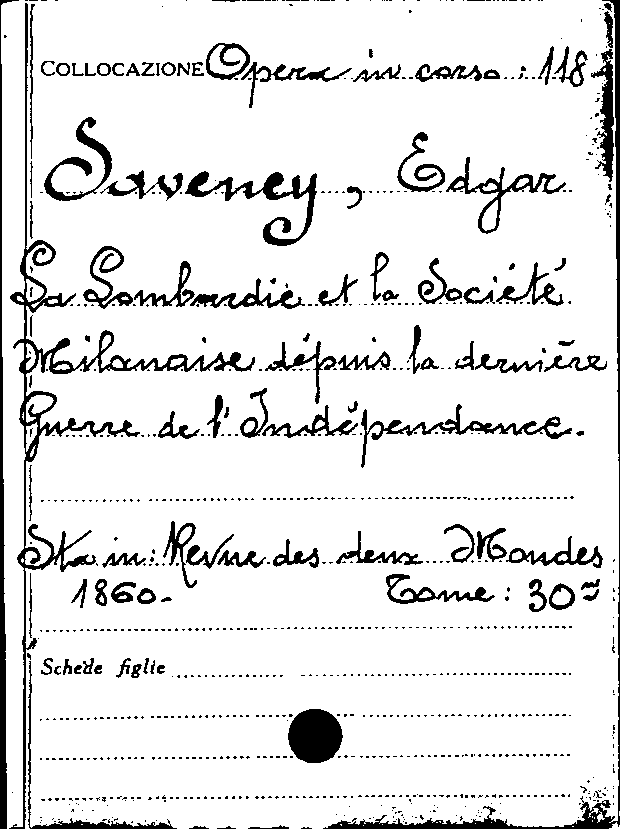 COLLOCAZIONE Opera in corso: 118-
Saveney, Edgar
La Lombardie et la Société
Milanaise dépuis la dernière
Guerre de l'Indépendance.
Sta in: Revue des deux Mondes
1860. Tome: 30m
Schede figlie